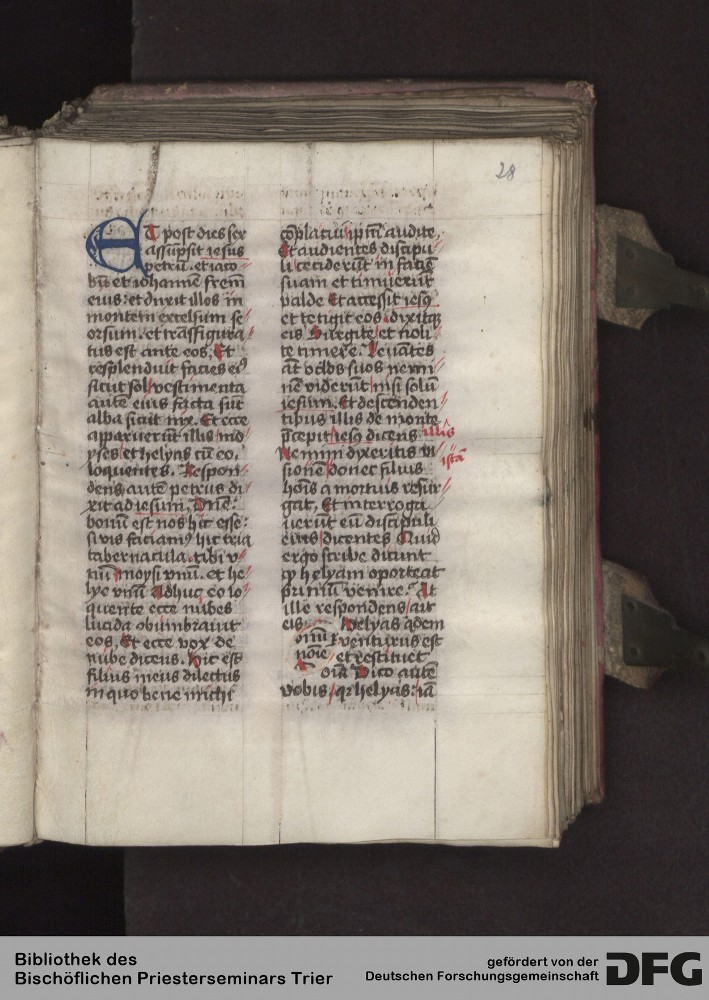 28
ET post dies sex
assūpsit iesus
petrū . et iaco
bū et iohannē frem
eius : et duxit illos in
montem excelsum se
orsum . et trāsfigura
tus est ante eos, Et
resplenduit facies eiꝰ
sicut sol / vestimenta
autē eius facta sūt
alba sicut nix . Et ecce
apparuerūt illis mo
yses et helyas cū eo,
loquentes . Respon
dens autē petrus di
xit ad iesum, Dnē :
bonū est nos hic esse :
si vis faciamꝰ hic tria
tabernacula . tibi v
nū moysi vnū . et he
lye vnū Adhuc eo lo
quente ecce nubes
lucida obumbrauit
eos, Et ecce vox de
nube dicens . Hic est
filius meus dilectus
in quo bene michi
cōplacui / ipm̄ audite,
Et audientes discipu
li ceciderūt in faciē
suam et timuerūt
valde Et accessit iesꝰ
et tetigit eos . dixitqꝫ
eis Surgite / et noli
te timere . Leuātes
āt oc̄los suos nemi
nē viderūt / nisi solū
iesum . Et descenden
tibus illis de monte
p̄cepit iesꝰ dicens illis
Nemini dyxeritis vi istā
sionē / donec filius
hoīs a mortuis resur
gat, Et interroga
uerūt eū discipuli
eius / dicentes Quid
ergo scribe dicunt
ꝙ helyam oporteat
primū venire . At
ille respondens / ait
eis . Helyas qdem
venturus est
et restituet
oīa Dico autē
vobis / qꝛ helyas : iā
Bibliothek des
Bischöflichen Priesterseminars Trier
gefördert von der
Deutschen Forschungsgemeinschaft
DFG